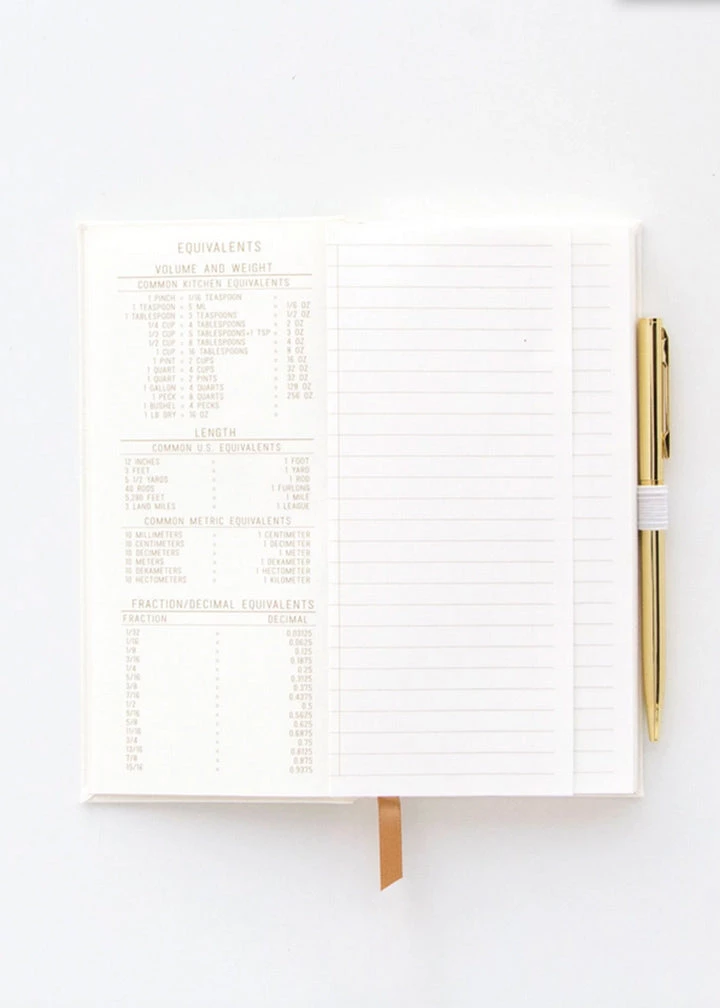 EQUIVALENTS
VOLUME AND WEIGHT
COMMON KITCHEN EQUIVALENTS
1 PINCH = 1/16 TEASPOON =
1 TEASPOON = 5 ML = 1/6 OZ
1 TABLESPOON = 3 TEASPOONS = 1/2 OZ
1/4 CUP = 4 TABLESPOONS = 2 OZ
1/3 CUP = 5 TABLESPOONS+1 TSP = 3 OZ
1/2 CUP = 8 TABLESPOONS = 4 OZ
1 CUP = 16 TABLESPOONS = 8 OZ
1 PINT = 2 CUPS = 16 OZ
1 QUART = 4 CUPS = 32 OZ
1 QUART = 2 PINTS = 32 OZ
1 GALLON = 4 QUARTS = 128 OZ
1 PECK = 8 QUARTS = 256 OZ
1 BUSHEL = 4 PECKS =
1 LB DRY = 16 OZ =
LENGTH
COMMON U.S. EQUIVALENTS
12 INCHES = 1 FOOT
3 FEET = 1 YARD
5-1/2 YARDS = 1 ROD
40 RODS = 1 FURLONG
5,280 FEET = 1 MILE
3 LAND MILES = 1 LEAGUE
COMMON METRIC EQUIVALENTS
10 MILLIMETERS = 1 CENTIMETER
10 CENTIMETERS = 1 DECIMETER
10 DECIMETERS = 1 METER
10 METERS = 1 DEKAMETER
10 DEKAMETERS = 1 HECTOMETER
10 HECTOMETERS = 1 KILOMETER
FRACTION/DECIMAL EQUIVALENTS
FRACTION DECIMAL
1/32 = 0.03125
1/16 = 0.0625
1/8 = 0.125
3/16 = 0.1875
1/4 = 0.25
5/16 = 0.3125
3/8 = 0.375
7/16 = 0.4375
1/2 = 0.5
9/16 = 0.5625
5/8 = 0.625
11/16 = 0.6875
3/4 = 0.75
13/16 = 0.8125
7/8 = 0.875
15/16 = 0.9375